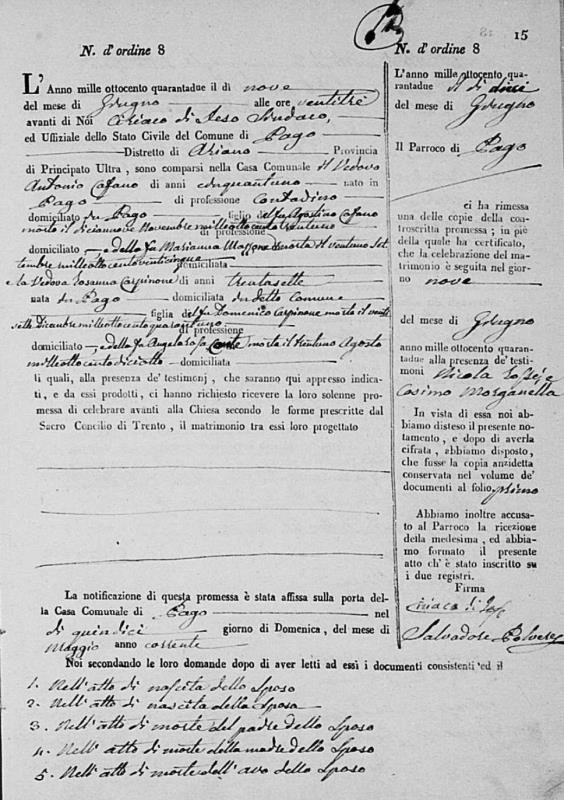 15
N. d'ordine 8
L'Anno mille ottocento quarantadue il dì nove
del mese di Giugno alle ore ventitrè
avanti di Noi Ciriaco di Sindaco,
ed Uffiziale dello Stato Civile del Comune di Pago
Distretto di Ariano Provincia
di Principato Ultra, sono comparsi nella Casa Comunale il Vedovo
Antonio Cafano di anni cinquantuno nato in
Pago di professione Contadino
domiciliato in Pago figlio del fu Agostino Cafano
morto il diciannove Novembre milleottocento ventuno
di professione
domiciliato e della fu Marianna morta il ventuno Set
tembre milleottocentoventicinque
domiciliata
e la Vedova Rosanna Carpinone di anni trentasette
nata in Pago domiciliata in detto Comune
figlia del fu Domenico Carpinone morto il venti
sette Dicembre milleottocentoquarantuno
di professione
domiciliato, e della fu Angelarosa Conte morta il ventuno Agosto
milleottocentodiciotto domiciliata
li quali, alla presenza de' testimonj, che saranno qui appresso indica-
ti, e da essi prodotti, ci hanno richiesto ricevere la loro solenne pro-
messa di celebrare avanti alla Chiesa secondo le forme prescritte dal
Sacro Concilio di Trento, il matrimonio tra essi loro progettato
La notificazione di questa promessa è stata affissa sulla porta del-
la Casa Comunale di Pago nel
dì quindici giorno di Domenica, del mese di
Maggio anno corrente
Noi secondando le loro domande dopo di aver letti ad essi i documenti consistenti ed il
1. Nell'atto di nascita dello Sposo
2. Nell'atto di nascita della Sposa
3. Nell'atto di morte del padre dello Sposo
4. Nell'atto di morte della madre dello Sposo
5. Nell'atto di morte dell'avo dello Sposo
N. d'ordine 8
L'anno mille ottocento qua-
rantadue il dì dieci
del mese di Giugno
Il Parroco di Pago
ci ha rimessa
una delle copie della con-
troscritta promessa; in piè
della quale ha certificato,
che la celebrazione del ma-
trimonio è seguita nel gior-
no nove
del mese di Giugno
anno mille ottocento quaran-
tadue alla presenza de' testi-
moni Nicola e
Cosimo Morganella
In vista di essa noi ab-
biamo disteso il presente no-
tamento, e dopo di averla
cifrata, abbiamo disposto,
che fusse la copia anzidetta
conservata nel volume de'
documenti al foglio primo
Abbiamo inoltre accusa-
to al Parroco la ricezione
della medesima, ed abbia-
mo formato il presente
atto ch'è stato inscritto su
i due registri.
Firma
Ciriaco di
Salvadore Polvere